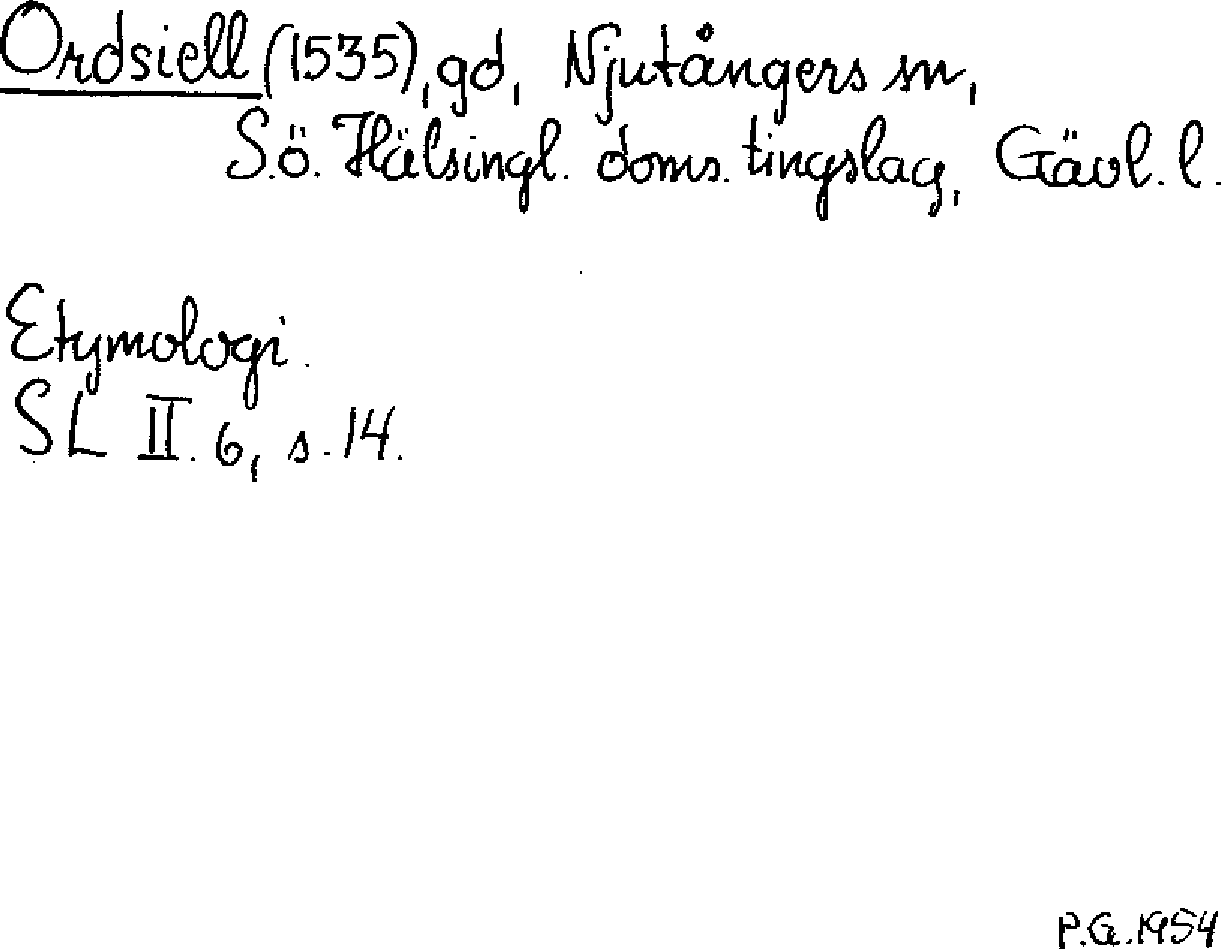 Ordsiell (1535), gd, Njutångers sn,
S.ö. Hälsingl. doms. tingslag, Gävl. l.
Etymologi.
SL II. 6, s. 14.
P.G. 1954